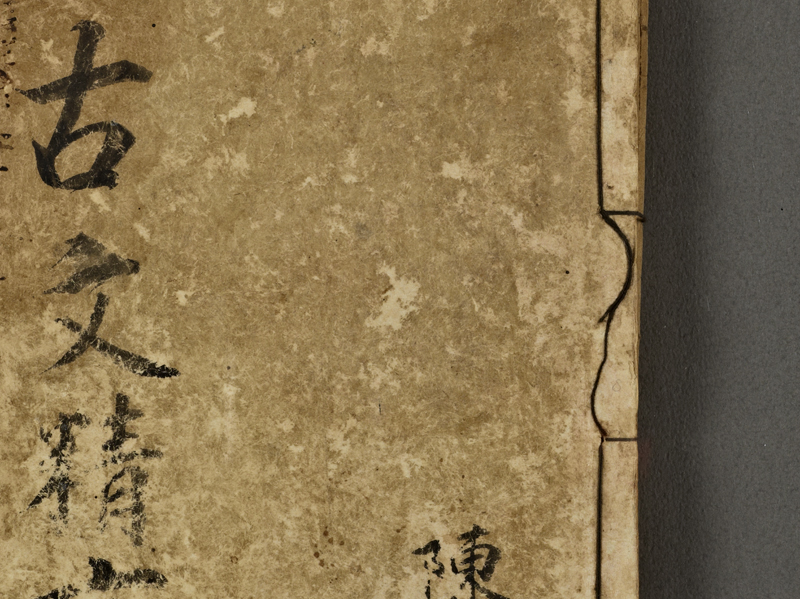 陳
古文精